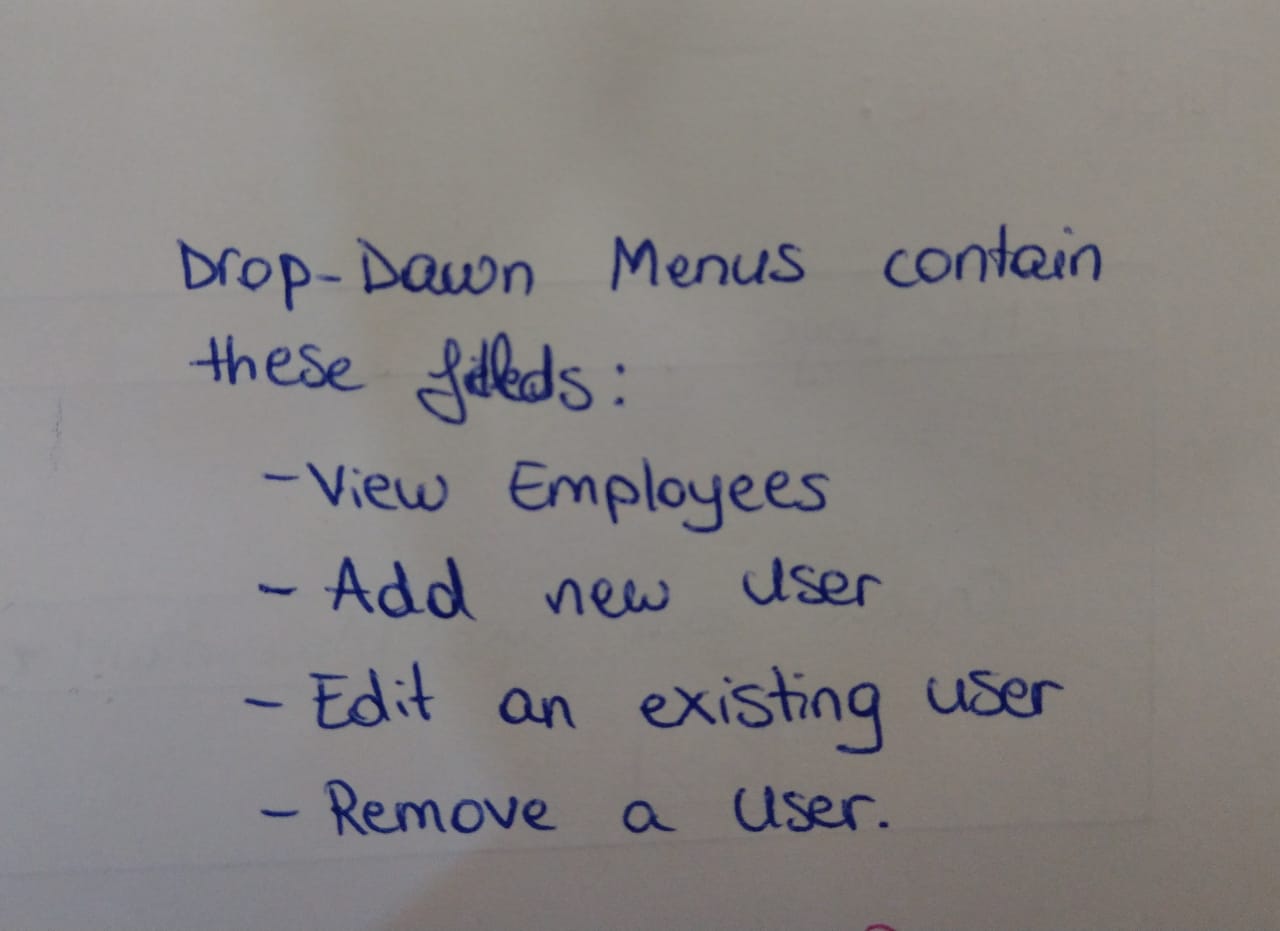 Drop-Dawn Menus contain
these fileds:
-View Employees
- Add new user
- Edit an existing user
- Remove a user.